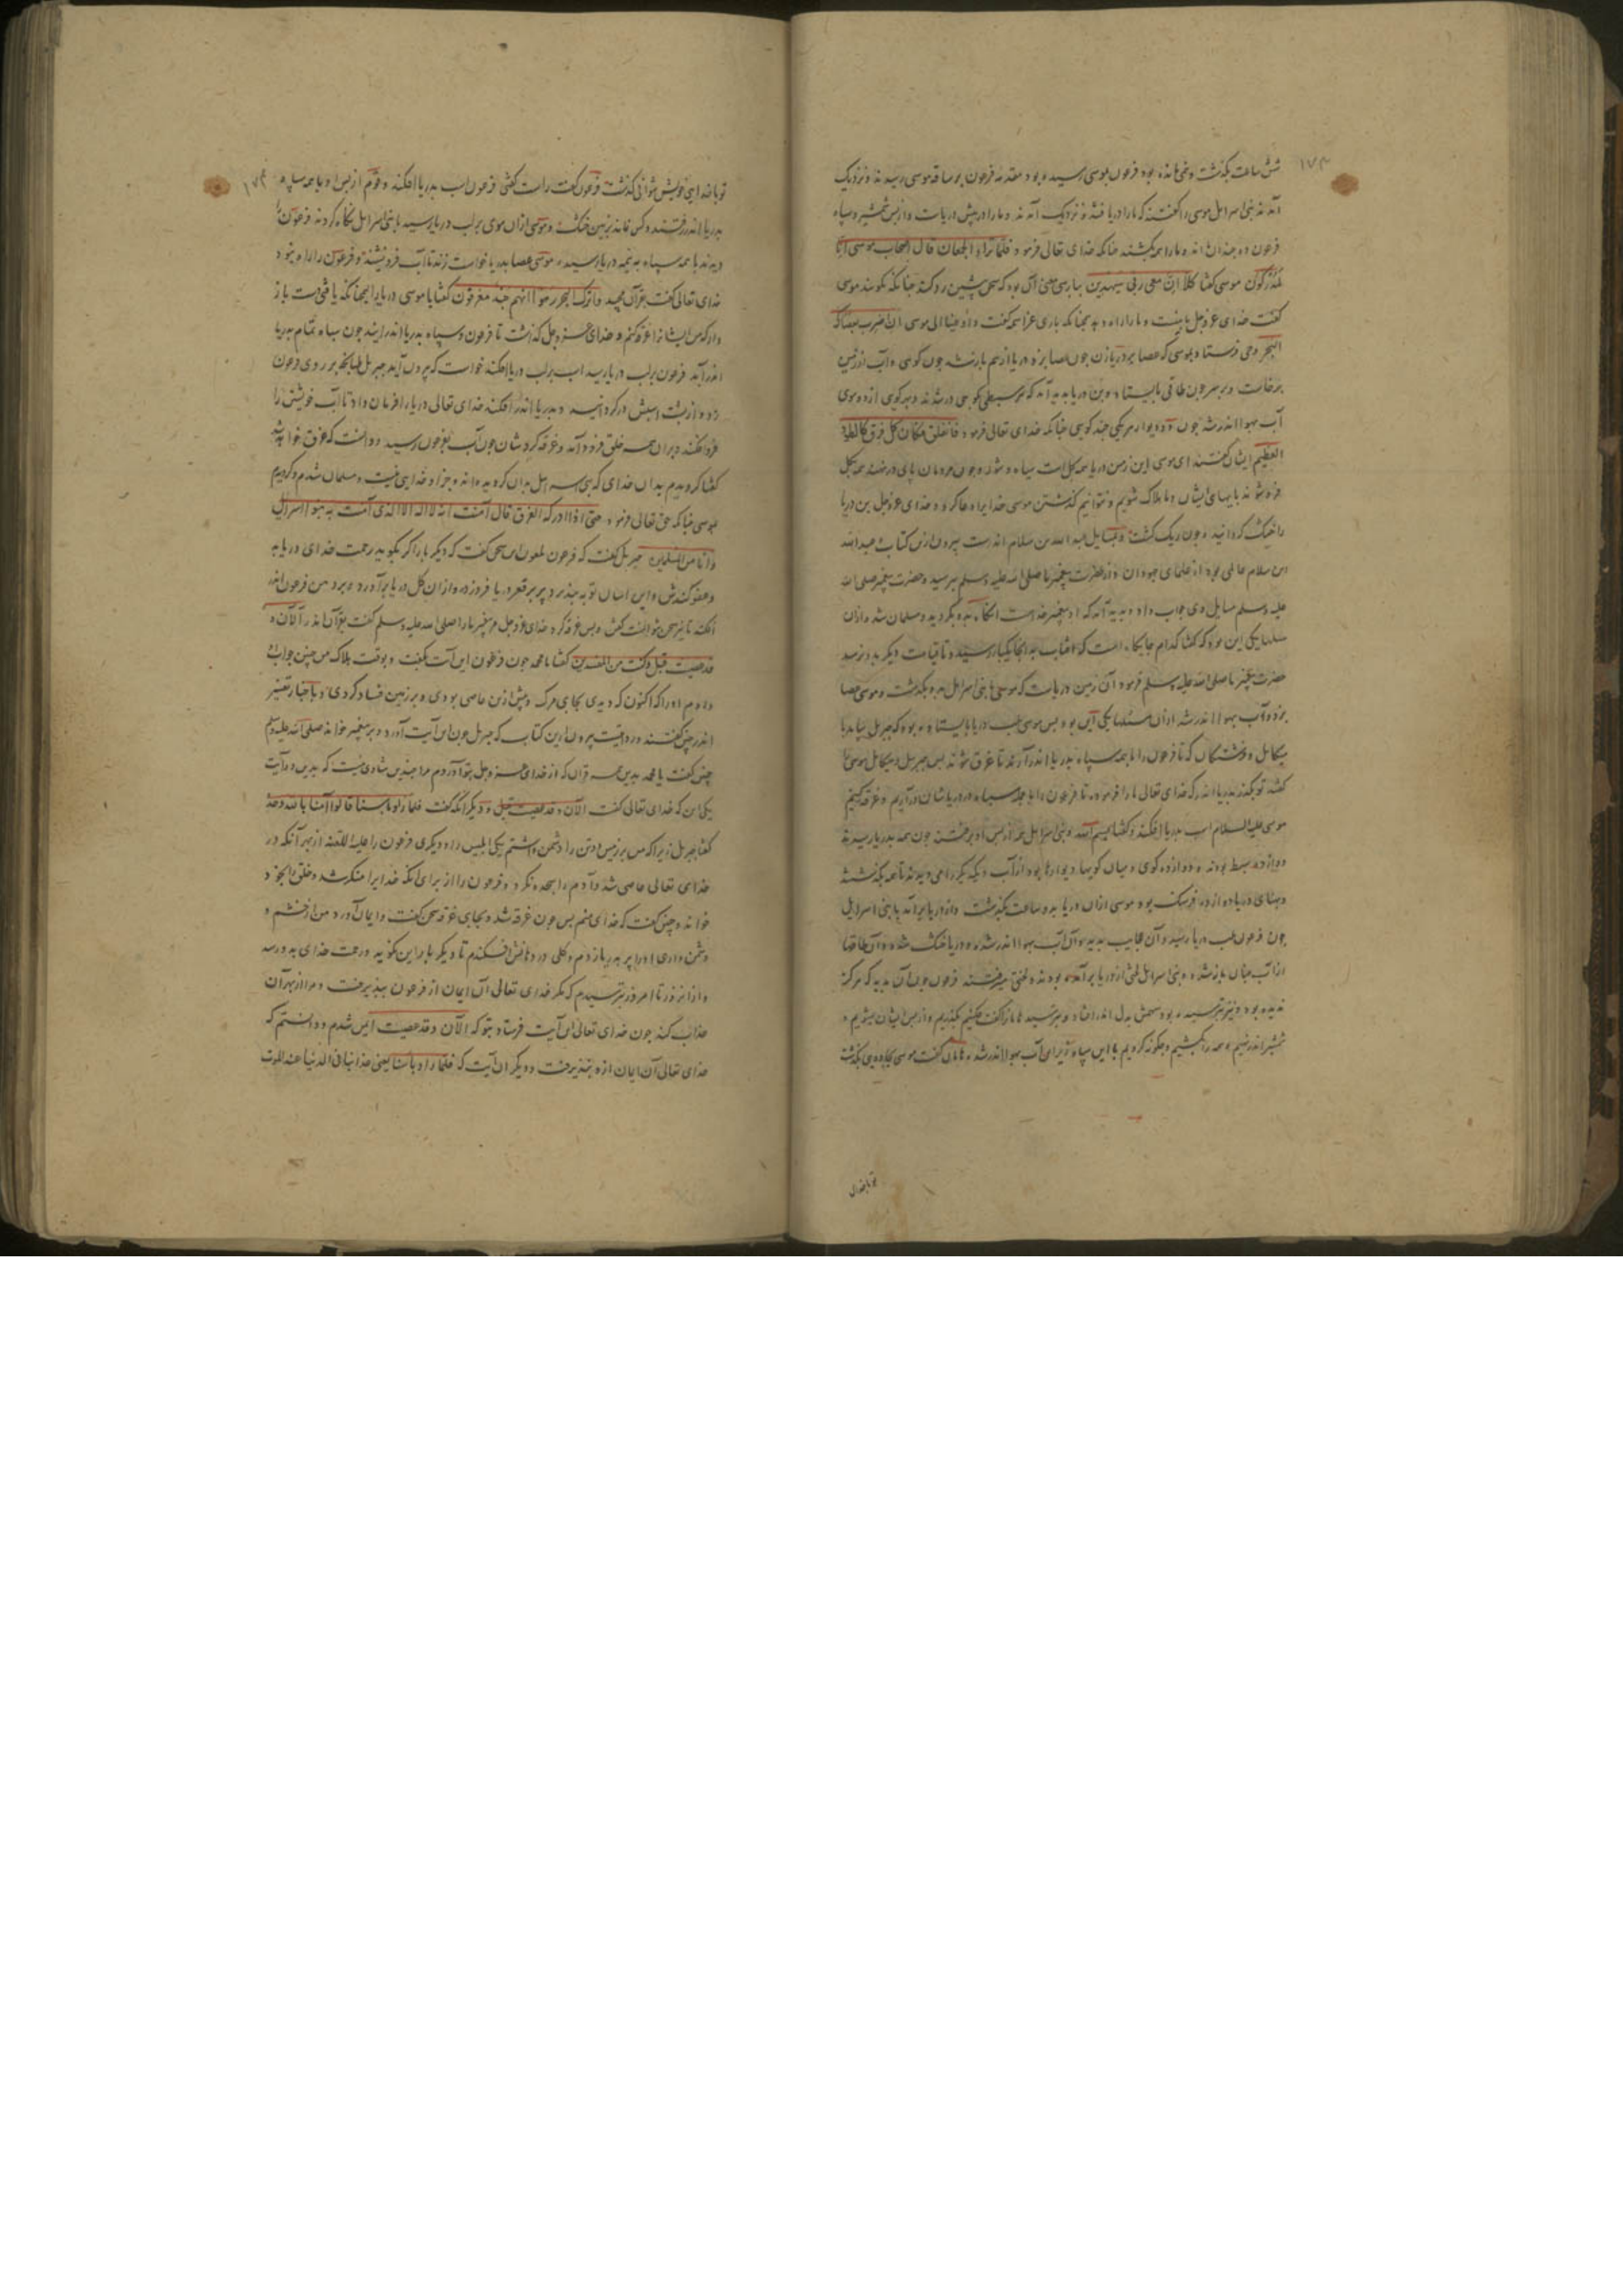 شش ساعت بگذشت و می مانده بود فرعون بموسی رسیده بود مقدمه فرعون بر ساقه موسی رسیدند و نزدیک
آمدند بنی اسرائیل موسی را گفتند که ما را دریافتند و نزدیک آمدند و ما را در پیش دریاست و از پس شمشیر و سپاه
فرعون و ما را همه بکشند چنانکه خدای تعالی فرمود فلما تراء الجمعان قال اصحاب موسی انا
لمدرکون موسی گفتا کلا ان معی ربی سیهدین بپارسی معنی آن بود که سخن پیشین رد کند چنانکه گویند موسی
گفت خدای عز و جل با ماست و ما را راه دهد همچنانکه باری عز اسمه گفت و اوحینا الی موسی ان اضرب بعصاک
البحر وحی فرستاد بموسی که عصا بر دریا زن چون عصا بزد دریا از هم باز شد چون کوهی و آب از زمین
برخاست و بر سر چون طاقی بایستاد و بن دریا پدید آمد که هر سبطی کوچی در شدند و بهر کوی از دو سوی
آب بهوا اندر شد چون دو دیوار هر یکی چند کوهی چنانکه خدای تعالی فرمود فانفلق فکان کل فرق کالطود
العظیم ایشان گفتند ای موسی این زمین دریا همه گل است سیاه و شور و چون مردمان پای در نهند همه بگل
فرو شوند پایهای ایشان و ما هلاک شویم و نتوانیم گذشتن موسی خدایرا دعا کرد و خدای عز و جل بن دریا
را خشک گردانید و چون ریگ گشت و بمسایل عبد الله بن سلام اندرست بیرون ازین کتاب عبد الله
بن سلام عالمی بود از علمای جهودان و از حضرت پیغمبر ما صلی الله علیه و سلم بپرسید و حضرت پیغمبر صلی الله
علیه و سلم مسایل وی جواب داد و پدید آمد که او پیغمبر خداست آنگاه بدو بگروید و مسلمان شد و از آن
مسلها یکی این بود که گفتا کدام جایگاه است که آفتاب بدانجا یکبار رسید و تا قیامت دیگر بدو نرسد
حضرت پیغمبر ما صلی الله علیه و سلم فرمود آن زمین دریاست که موسی با بنی اسرائیل بدو بگذشت و موسی عصا
بزد و آب بهوا اندر شد از آن مسئلها یکی این بود پس موسی بلب دریا بایستاده بود که جبریل بیامد با
میکائیل و فرشتگان که تا فرعون را با همه سپاه بدریا اندر آرند تا غرق شوند پس جبریل و میکائیل موسی را
گفتند تو بگذر بدریا اندر که خدای تعالی ما را فرمود تا فرعون را با جمله سپاه در دریاشان در آریم و غرقه کنیم
موسی علیه السلام اسب بدریا افکند و گفتا بسم الله و بنی اسرائیل همه از پس او برفتند چون همه بدریا رسیدند
دوازده سبط بودند و دوازده کوی و میان کویها دیوارها بود از آب و یک دیگر را می دیدند تا همه بگذشتند
و پهنای دریا دوازده فرسنگ بود موسی از آن دریا بدو ساعت بگذشت و از دریا برآمد با بنی اسرائیل
چون فرعون بلب دریا رسید و آن عجایب بدید و آن آب بهوا اندر شده و دریا خشک شده و آن طاقها
از آب چنان باز شده و بنی اسرائیل از دریا برآمده بودند و لختی میرفتند فرعون چون آن بدید که هرگز
ندیده بود و نیز نترسیده بود سهمش بدل اندر افتاد و بترسید هامان را گفت چکنیم بگذریم و از پس ایشان بشویم و
شمشیر اندر نهیم و همه را بکشیم و چگونه کردیم با این سپاه زیر این آب بهوا اندر شده هامان گفت موسی بجادوی بگذشت
تو با خدای
تو با خدایی خویش نتوانی گذشت فرعون گفت راست گفتی فرعون اسب بدریا افکند و قوم از پس او با همه سپاه
بدریا اندر رفتند و کس نماند بزمین خشک و موسی از آن سوی بر لب دریا رسید با بنی اسرائیل نگاه کردند فرعون را
دیدند با همه سپاه به نیمه دریا رسیده موسی عصا بدریا خواست زدن تا آب فرو نشیند و فرعون را راه نبود
خدای تعالی گفت بقرآن مجید و اترک البحر رهوا انهم جند مغرقون گفتا یا موسی دریا را همچنانکه یافتی دست باز
دار که من ایشانرا غرقه کنم و خدای عز و جل گذاشت تا فرعون و سپاه بدریا اندر آیند چون سپاه بتمام بدریا
اندر آمد فرعون بر لب دریا رسید اسب بر لب دریا افکند خواست که برون آید جبریل طپانچه بر روی فرعون
زد و از پشت اسبش در گردانید و بدریا اندر افکند خدای تعالی دریا را فرمان داد تا آب خویشتن را
فرو افکند و بر آن همه خلق فرود آمد و غرقه کردشان چون آب بفرعون رسید و دانست که غرق خواهد شد
گفتا گرویدم بدان خدای که بنی اسرائیل بدان گرویده اند و جز او خدایی نیست و مسلمان شدم و گرویدم
بموسی چنانکه حق تعالی فرمود حتی اذا ادرکه الغرق قال آمنت انه لا اله الا الذی آمنت به بنوا اسرائیل
و انا من المسلمین جبریل گفت که فرعون ملعون این سخن گفت که دیگر بار اگر بگوید رحمت خدای دریابد
و عفو کندش و این ایمان توبه بپذیرد پر بر قعر دریا فرو زد و از آن گل دریا برآورد و بر دهن فرعون اندر
افکند تا نیز سخن نتوانست گفتن و پس غرقه کرد خدای عز و جل مر پیغمبر ما را صلی الله علیه و سلم گفت بقرآن اندر آلآن و
قد عصیت قبل و کنت من المفسدین گفتا یا محمد چون فرعون این آیت بگفت و بوقت هلاک من چنین جواب
دادم او را که اکنون که دیدی بجای مرگ و پیش ازین عاصی بودی و بر زمین فساد کردی و باخبار تفسیر
اندر چنین گفتند و روایتست بیرون ازین کتاب که جبریل چون این آیت آورد و بر پیغمبر خواند صلی الله علیه و سلم
چنین گفت یا محمد بدین همه قرآن که از خدای عز و جل بتو آوردم مرا چندین شادی نیست که بدین دو آیت
یکی این که خدای تعالی گفت آلآن و قد عصیت قبل و دیگر آنکه گفت فلما رأوا بأسنا قالوا آمنا بالله وحده
گفتا جبریل زیراکه من بر زمین دو تن را دشمن داشتم یکی ابلیس را و دیگری فرعون را علیه اللعنه از بهر آنکه در
خدای تعالی عاصی شد و آدم را سجده نکرد و فرعون را از برای آنکه خدایرا منکر شد و خلق را بخود
خواند و چنین گفت که خدای منم پس چون غرقه شد و بجای غرقه سخن گفت و ایمان آورد من از خشم و
دشمن داری او را پر بدریا زدم و گلی در دهانش افکندم تا دیگر بار این نگوید و رحمت خدای بدو رسد
و از آن روز تا امروز بترسیدم که مگر خدای تعالی آن ایمان از فرعون بپذیرفت و مرا از بهر آن
عذاب کند چون خدای تعالی این آیت فرستاد بتو که آلآن و قد عصیت ایمن شدم و دانستم که
خدای تعالی آن ایمان ازو نپذیرفت و دیگر آن آیت که فلما رأوا بأسنا یعنی عذابنا فی الدنیا عند الموت